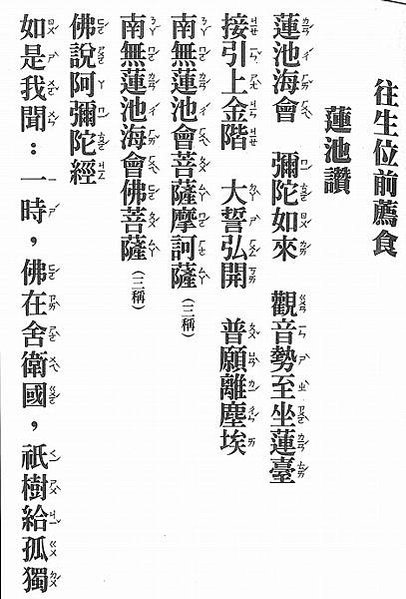 往生位前薦食
蓮池讚
蓮池海會　彌陀如來　觀音勢至坐蓮臺
接引上金階　大誓弘開　普願離塵埃
南無蓮池會菩薩摩訶薩（三稱）
南無蓮池海會佛菩薩（三稱）
佛說阿彌陀經
如是我聞：一時，佛在舍衛國，祇樹給孤獨